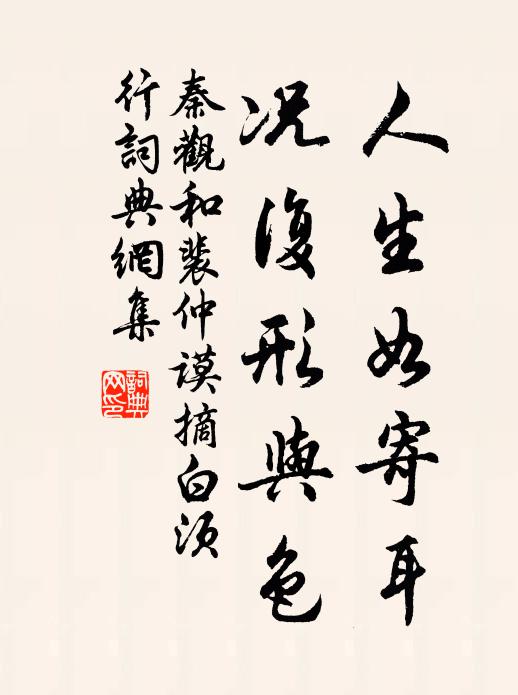 人生如寄耳
况復形與色
秦觀和裴仲謨摘白须
行詞典網集
詞典
网印